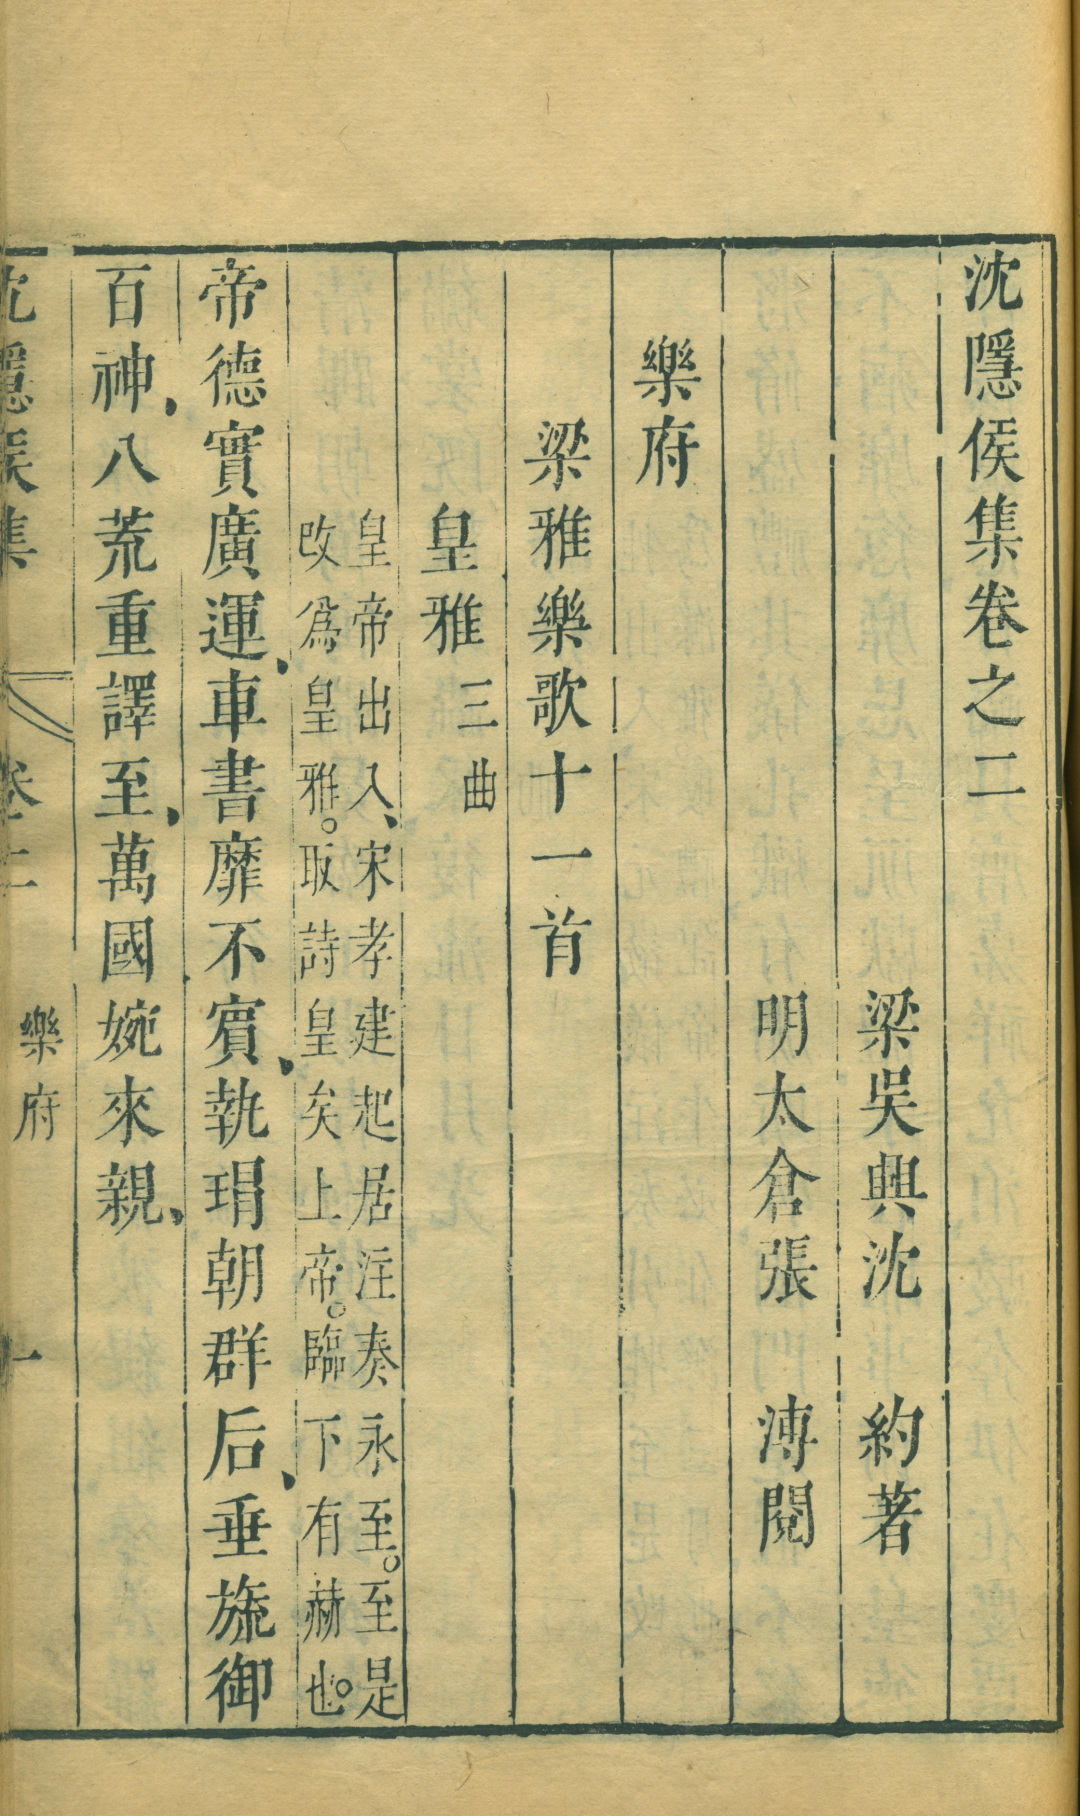 沈隱侯集卷之二
梁吳興沈 約著
明太倉張 溥閱
樂府
梁雅樂歌十一首
皇雅三曲
皇帝出入、宋孝建起居注奏永至。至是
改爲皇雅。取詩皇矣上帝。臨下有赫也。
帝德實廣運、車書靡不賓、執瑁朝群后、垂旒御
百神、八荒重譯至、萬國婉來親、
沈隱侯集 卷二 樂府 一